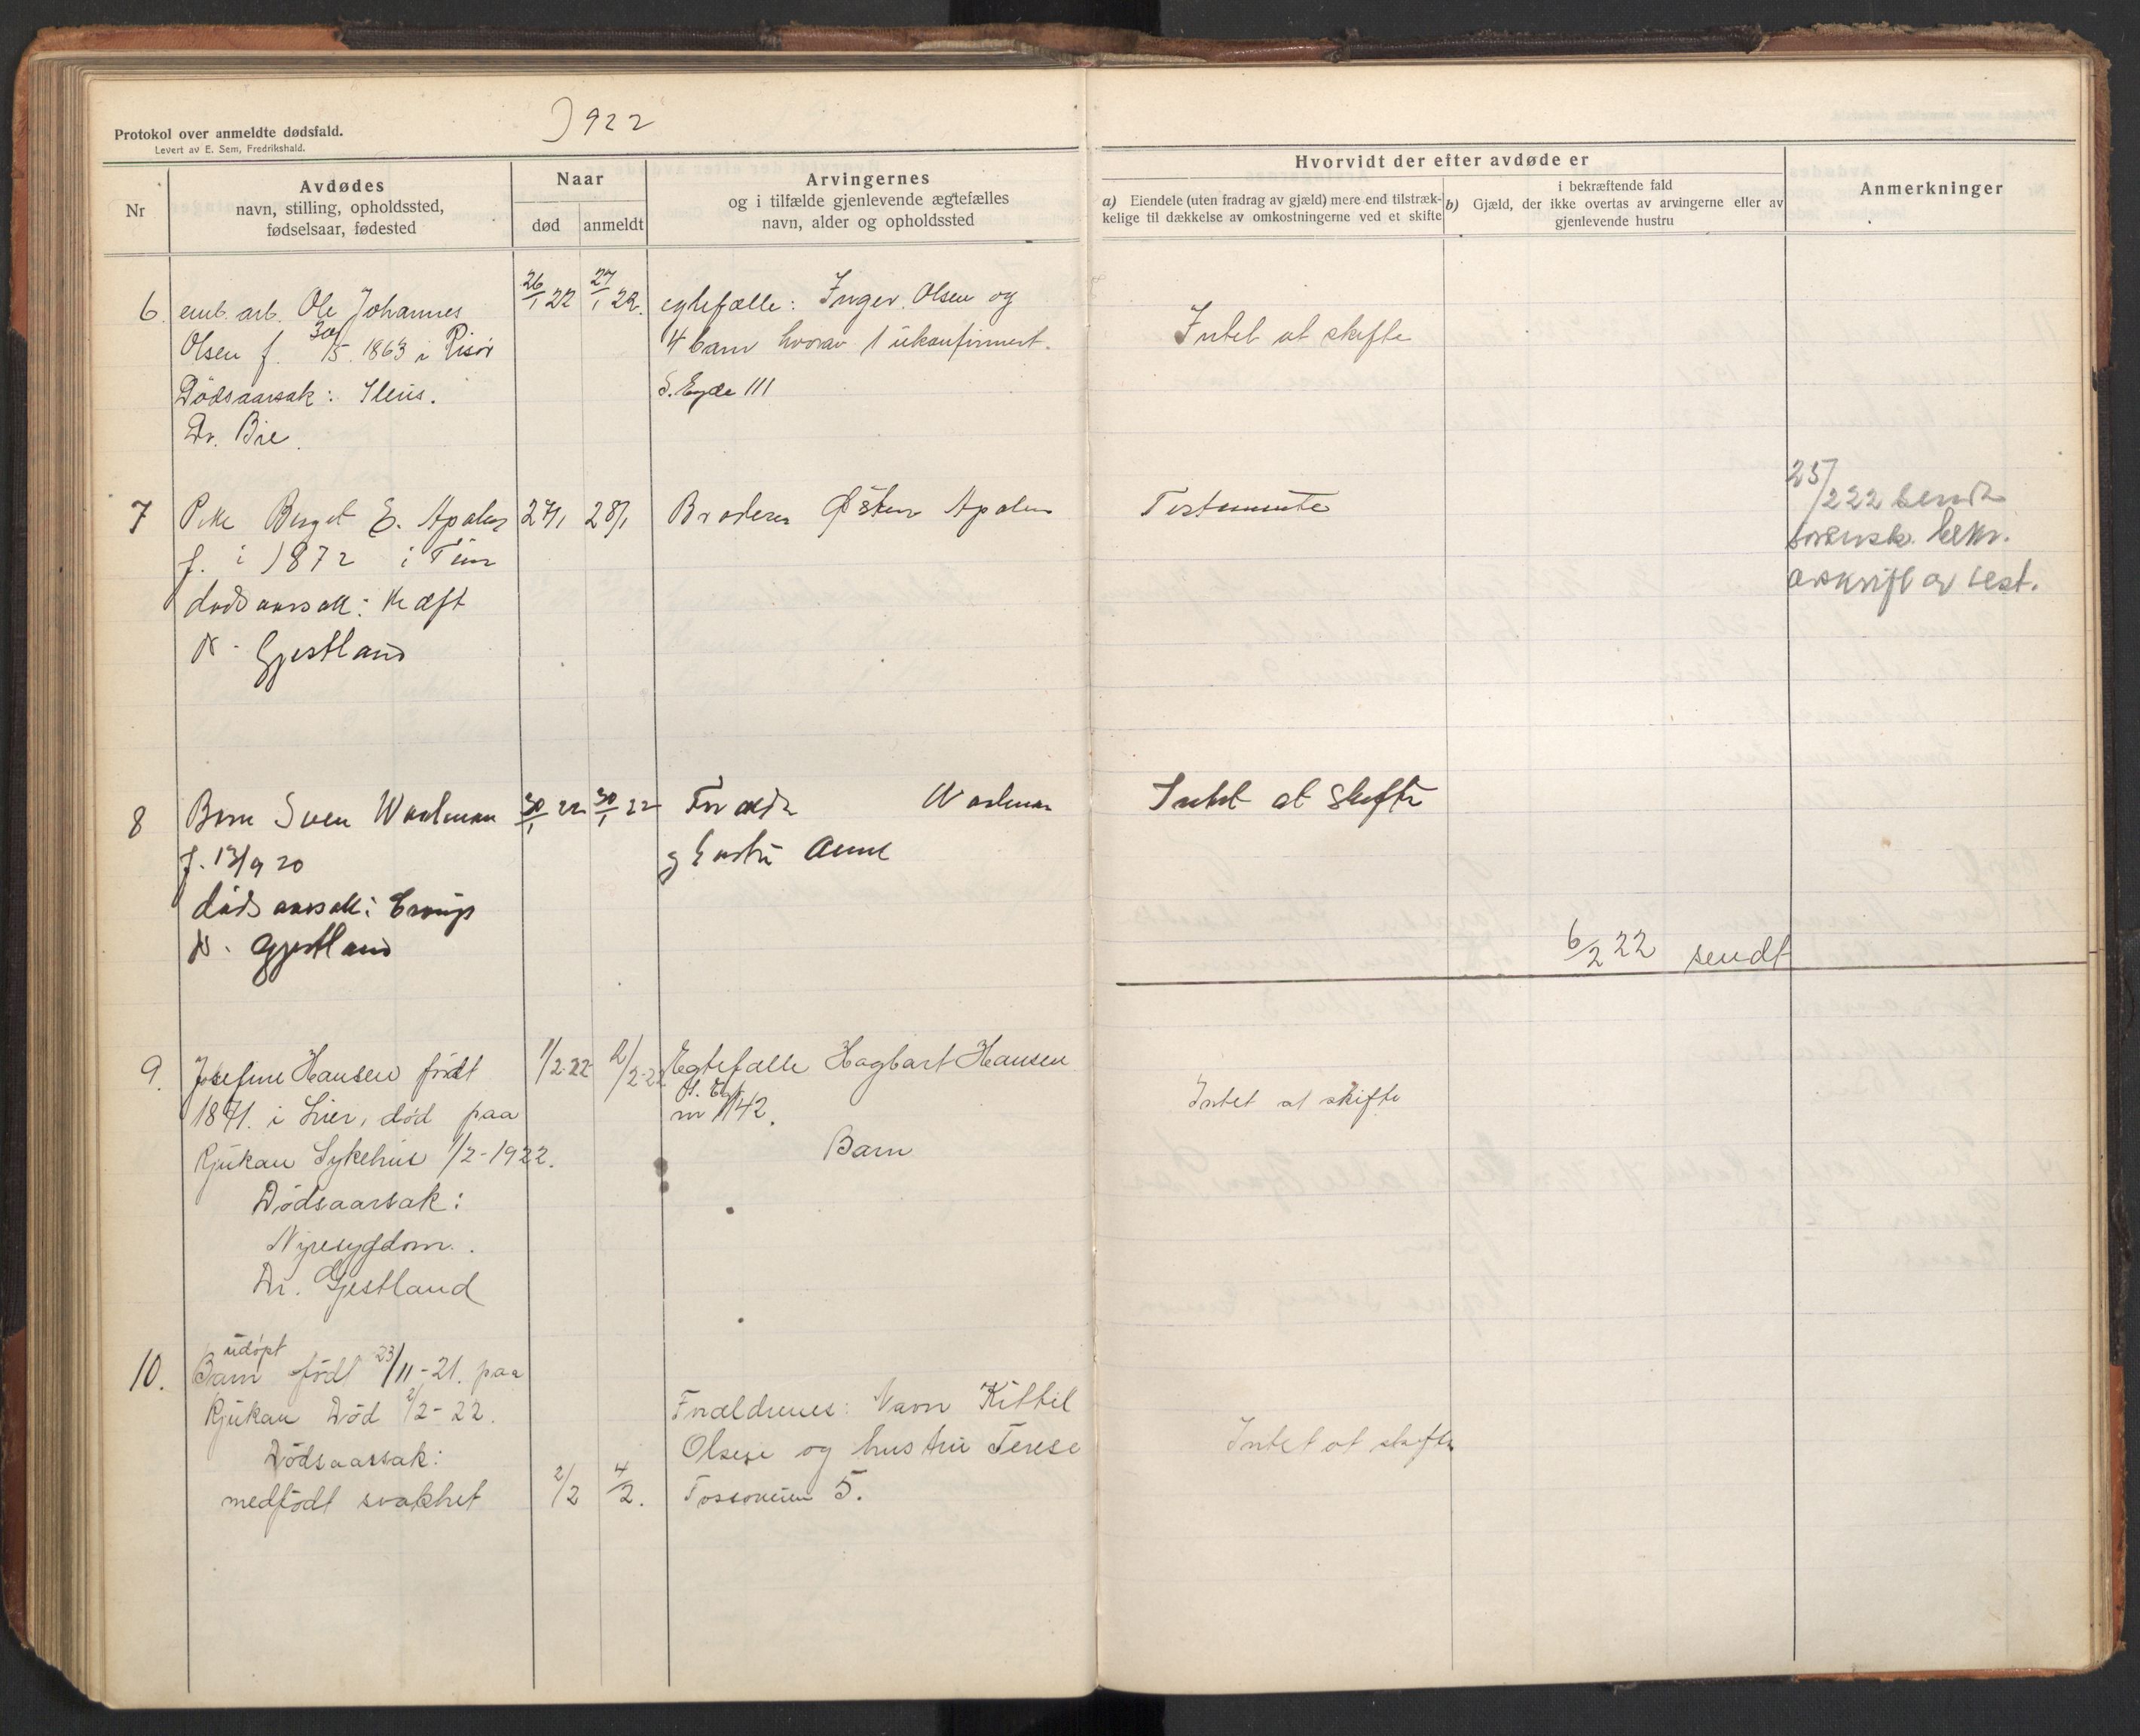 1922
Protokol over anmeldte dødsfald.
Levert av E. Sem, Fredrikshald.
Nr
Avdødes
navn, stilling, opholdssted,
fødselsaar, fødested
Naar
død
anmeldt
Arvingernes
og i tilfælde gjenlevende ægtefælles
navn, alder og opholdssted
Hvorvidt der efter avdøde er
a) Eiendele (uten fradrag av gjæld) mere end tilstræk-
kelige til dækkelse av omkostningerne ved et skifte
i bekræftende fald
b) Gjæld, der ikke overtas av arvingerne eller av
gjenlevende hustru
Anmerkninger
6. emb. arb. Ole Johannes 26/1 22 27/1 22. egtefælle: Inger Olsen og
Olsen f. 30/5 1863 i Risør 4 barn hvorav 1 ukonfirmert. Intet at skifte
Dödsaarsak: Ileus. S. Eyde 111
Dr. Bie.
7 Pike Berget E. 27/1 28/1 Broderen Østen Testamente
f. i 1872 i Tinn
dødsaarsak: Kræft
Dr. Gjestland
25/2 22 sendt
sorensk. bekr.
avskrift av test.
8 Barn Sven 30/1 22 30/1 22 Intet at skifte
f. 13/9 20 og hustru Anne
dødsaarsak: Croup
Dr. Gjestland
6/2 22 sendt
9. Josefine Hansen født 1/2-22 2/2-22 Egtefælle Hagbart Hansen
1871 i Lier, död paa nr 142. Intet at skifte
Rjukan Sykehus 1/2-1922. Barn
Dödsaarsak:
Nyresygdom.
Dr. Gjestland
10. Barn udöpt født 23/11-21. paa
Rjukan Død 2/2-22. Foraldrenes: Navn Kittil
Dödsaarsak: Olsen og hustru Terese Intet at skifte
medfödt svakhet 2/2 4/2. 5.